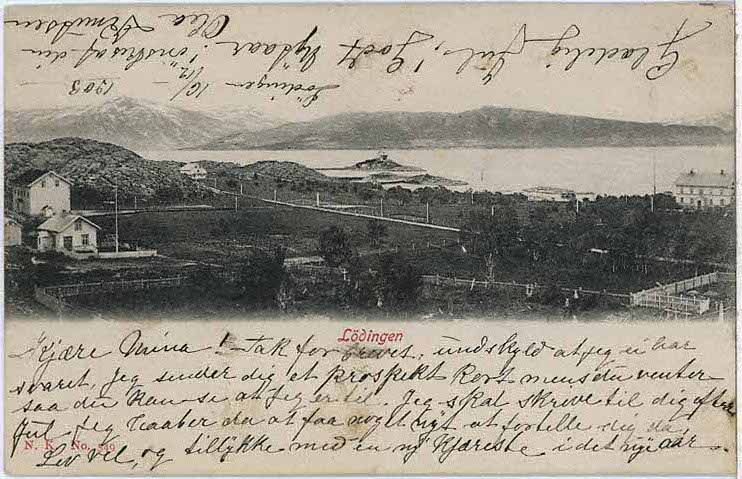 Lödingen 16/12 1903
Glædelig Jul, Godt Nytaar! ønskes af din
Olea Knudsen
Lödingen
Kjære Mina! Tak for brevet, undskyld at jeg ei har
svaret, jeg sender dig et prospekt kort mens du venter
saa du kan se at jeg er til. Jeg skal skreve til dig efter
Jul. Jeg haaber da at faa noget nyt at fortelle dig da,
Lev vel, og tillykke med en ny Kjæreste i det nye aar.
N. K. No.